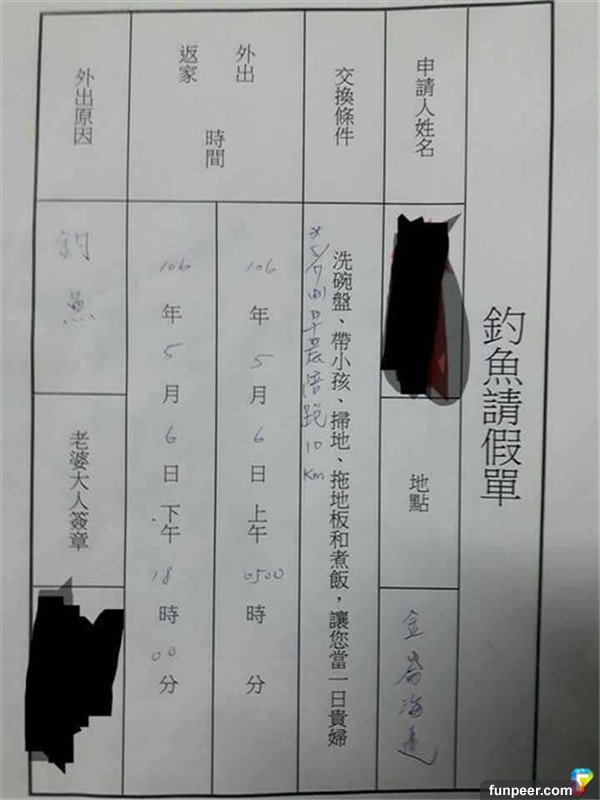 釣魚請假單
申請人姓名
地點
金崙海邊
交換條件
洗碗盤、帶小孩、掃地、拖地板和煮飯，讓您當一日貴婦
※5/7(日)早晨陪跑10Km
外出
返家
時間
106年5月6日上午0500時 分
106年5月6日下午18時00分
外出原因
釣魚
老婆大人簽章
funpeer.com